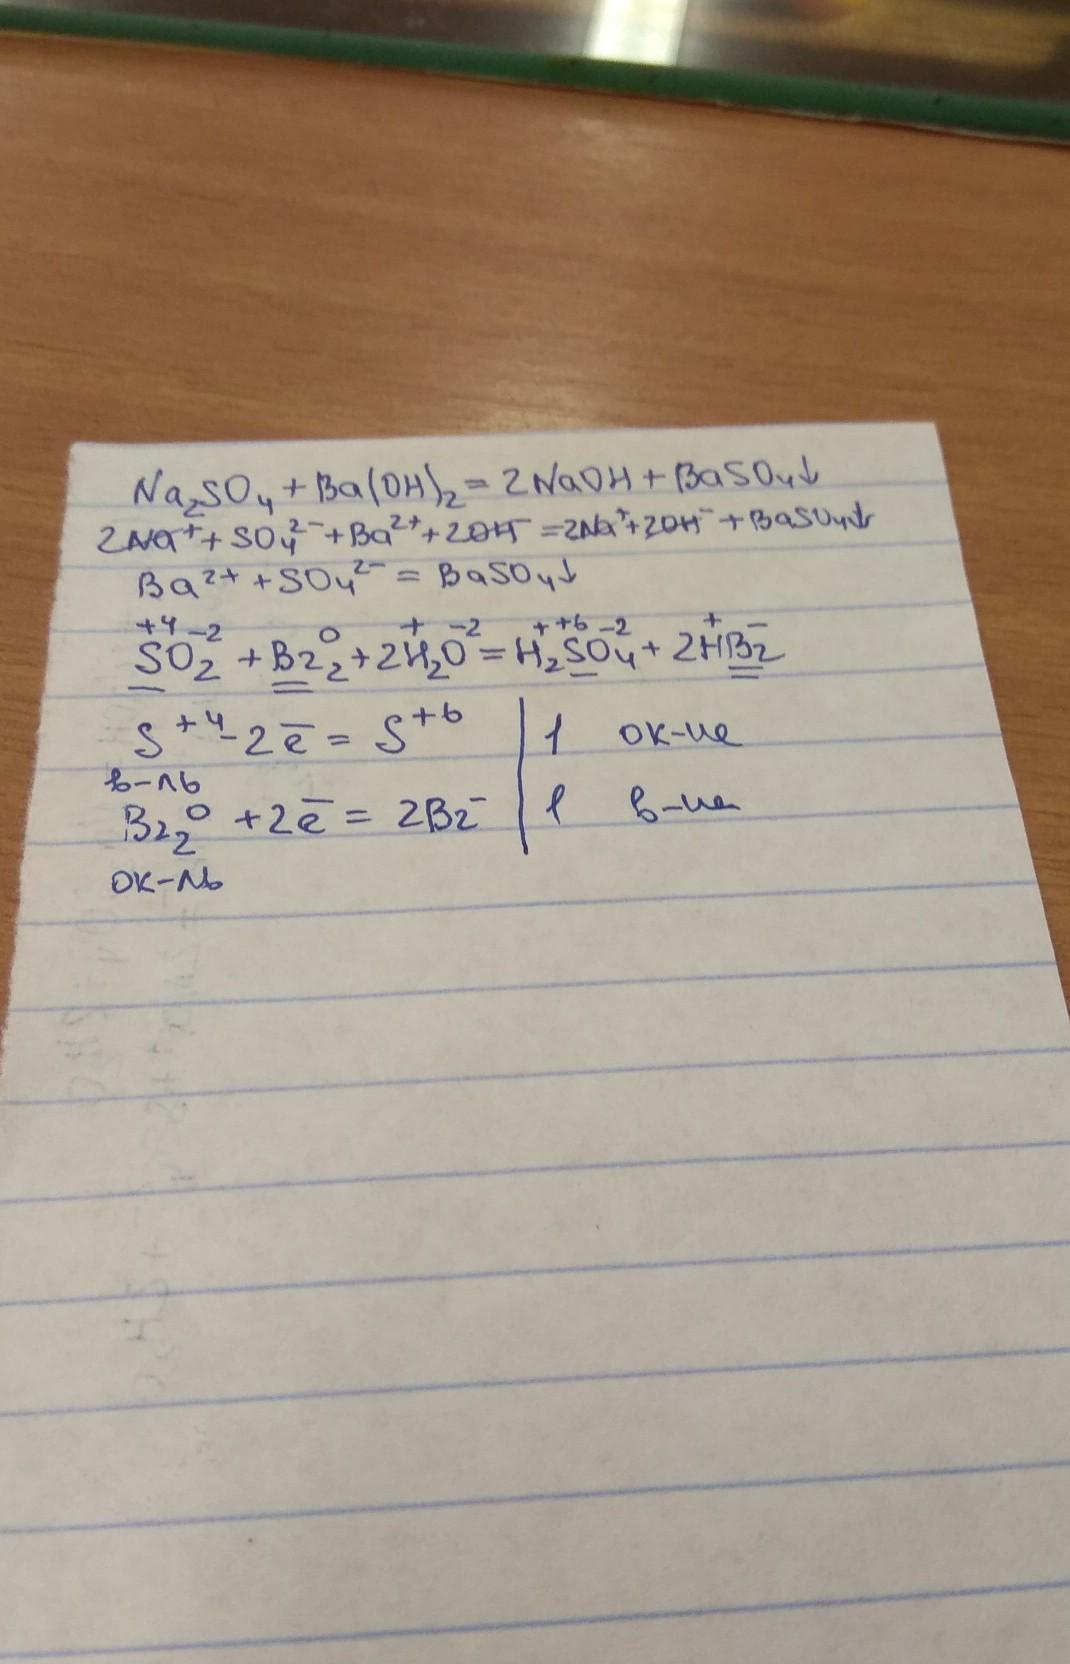 Na₂SO₄ + Ba(OH)₂ = 2NaOH + BaSO₄↓
2Na⁺ + SO₄²⁻ + Ba²⁺ + 2OH⁻ = 2Na⁺ + 2OH⁻ + BaSO₄↓
Ba²⁺ + SO₄²⁻ = BaSO₄↓
+4 -2 0 + -2 + +6 -2 + -
SO₂ + Br₂ + 2H₂O = H₂SO₄ + 2HBr
S⁺⁴ - 2e̅ = S⁺⁶ | 1 ок-ие
в-ль
Br₂⁰ + 2e̅ = 2Br⁻ | 1 в-ие
ок-ль